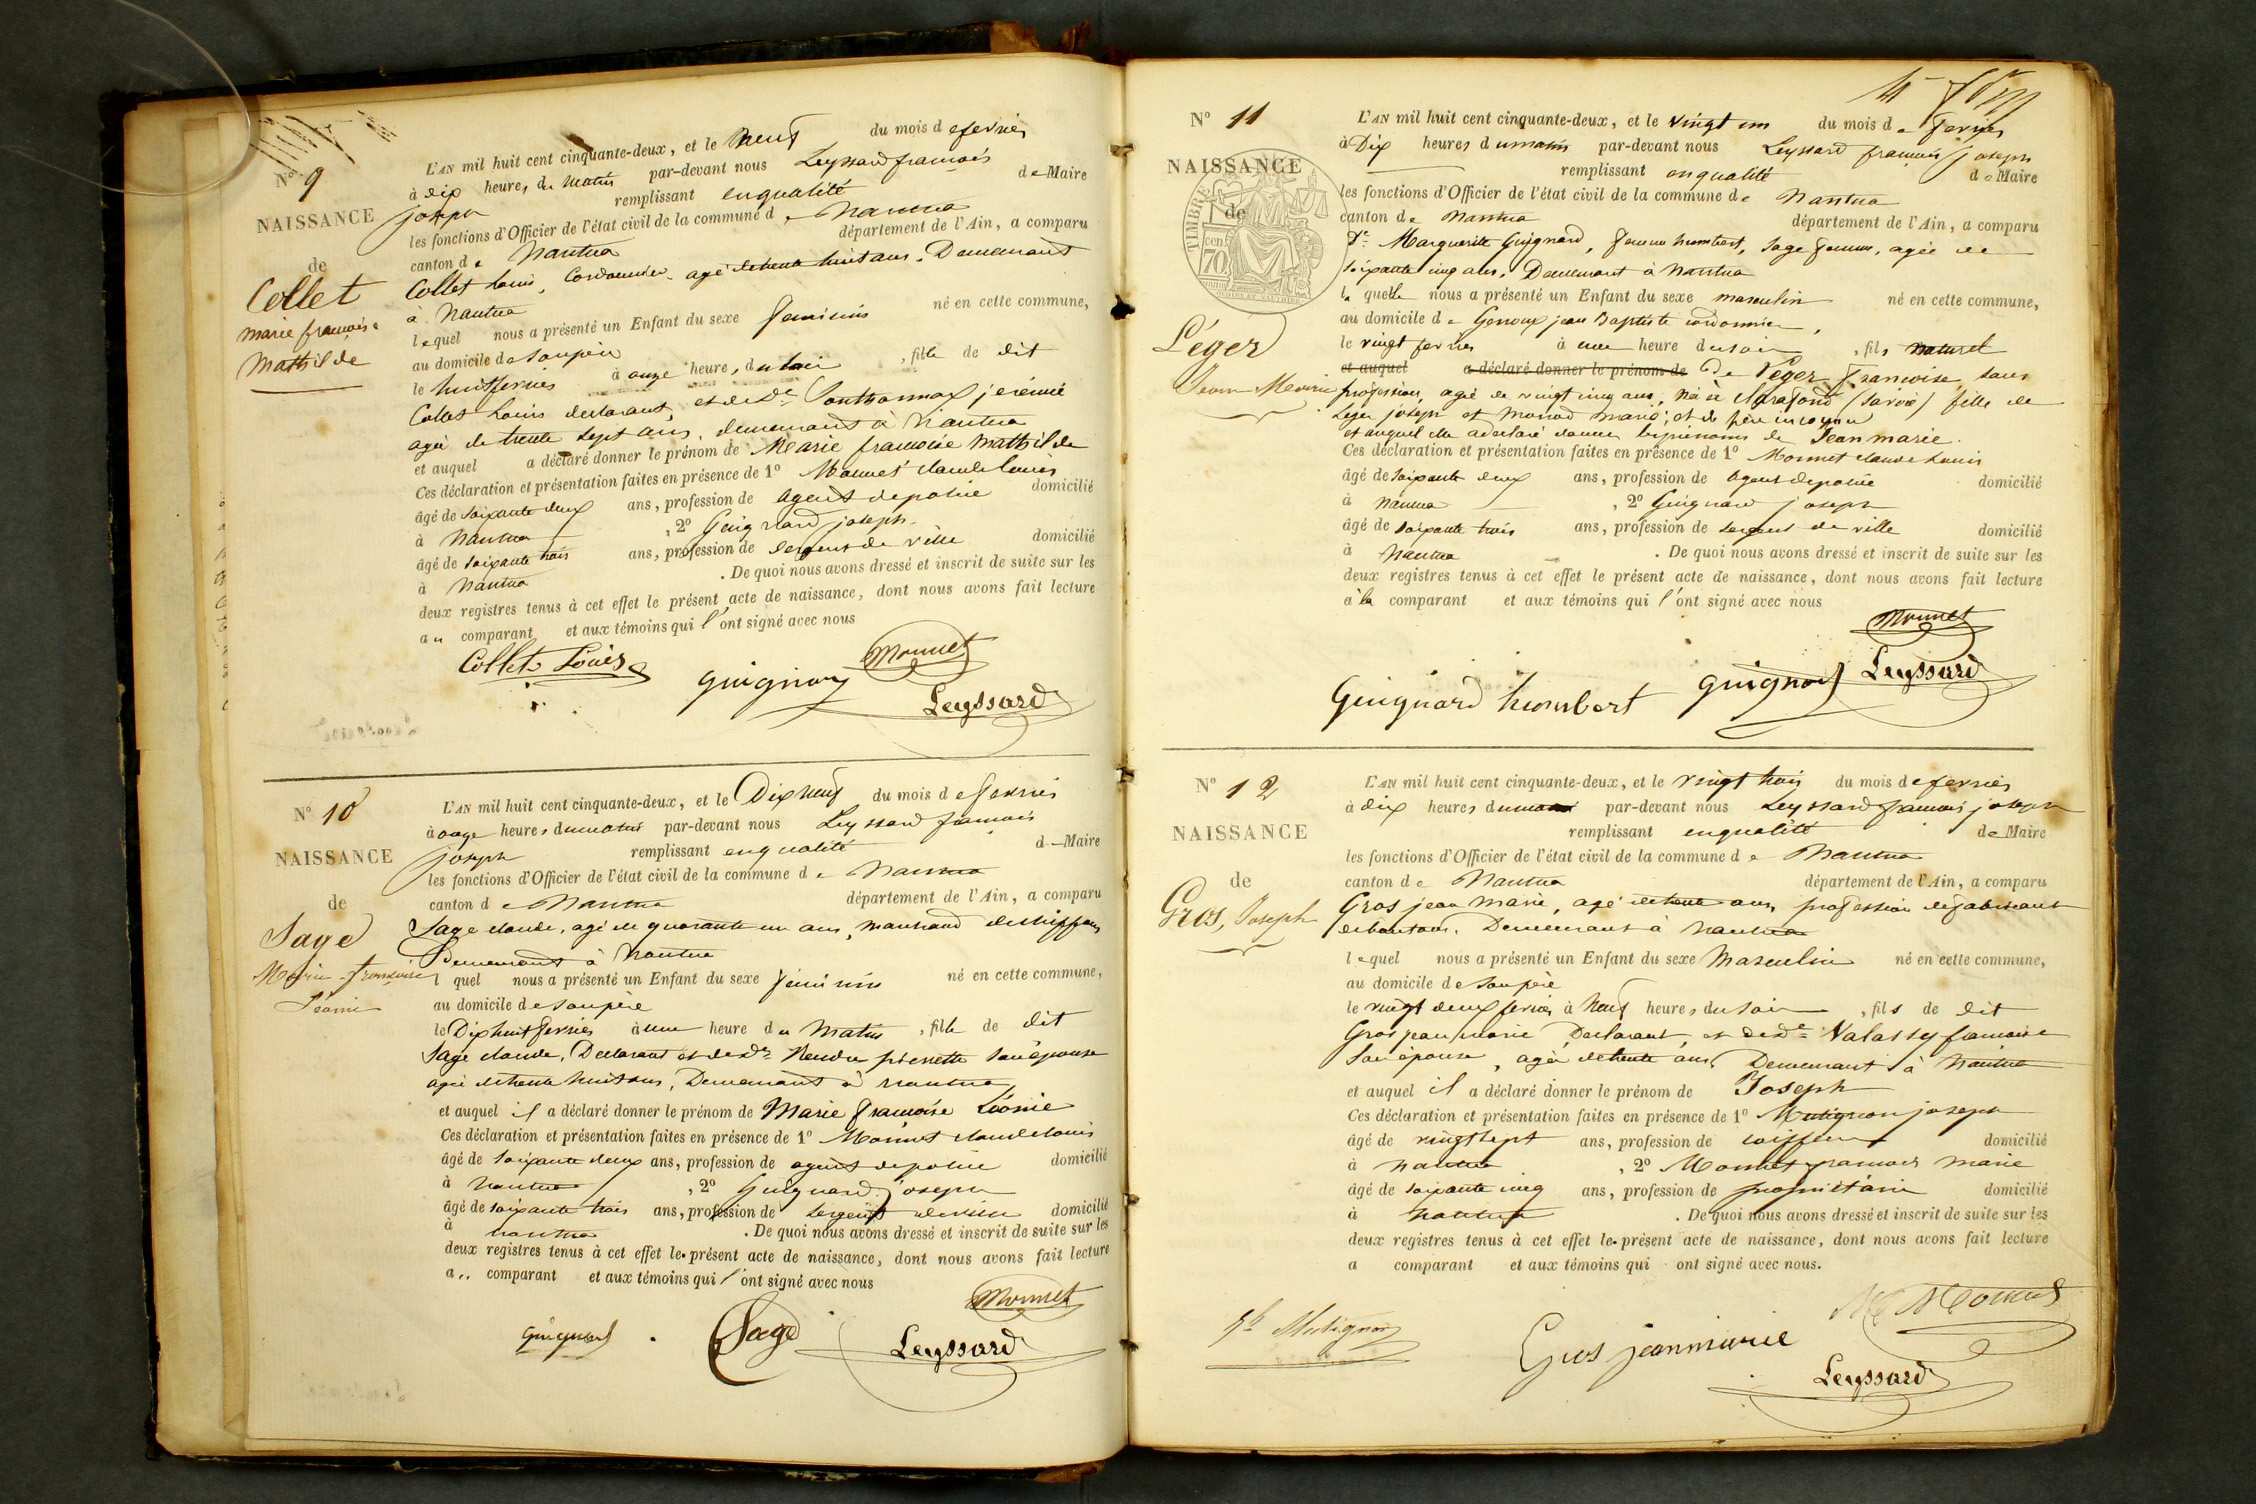 N° 9
NAISSANCE
de
Collet
marie françoise
Mathilde
L'AN mil huit cent cinquante-deux, et le neuf du mois de fevrier
à dix heures du matin par-devant nous Leyssard françois
joseph remplissant en qualité de Maire
les fonctions d'Officier de l'état civil de la commune de Nantua
canton de Nantua département de l'Ain, a comparu
Collet Louis, Cordonnier, agé de trente huit ans, Demeurant
à Nantua
lequel nous a présenté un Enfant du sexe feminin né en cette commune,
au domicile de son père
le huit fevrier à onze heures du soir, fille de dit
Collet Louis declarant, et de de Ponthonnax
agée de trente sept ans, demeurant à Nantua
et auquel a déclaré donner le prénom de Marie françoise Mathilde
Ces déclaration et présentation faites en présence de 1° Monnet claude Louis
âgé de soixante deux ans, profession de agent de police domicilié
à Nantua, 2° Guignard joseph
âgé de soixante trois ans, profession de sergent de ville domicilié
à Nantua. De quoi nous avons dressé et inscrit de suite sur les
deux registres tenus à cet effet le présent acte de naissance, dont nous avons fait lecture
au comparant et aux témoins qui l'ont signé avec nous
Collet Louis guignard Monnet
Leyssard
N° 10
NAISSANCE
de
Sage
Marie françoise
Léonie
L'AN mil huit cent cinquante-deux, et le Dix neuf du mois de fevrier
à onze heures du matin par-devant nous Leyssard françois
joseph remplissant en qualité de Maire
les fonctions d'Officier de l'état civil de la commune de Nantua
canton de Nantua département de l'Ain, a comparu
Sage claude, agé de quarante un ans, marchand de chiffons
Demeurant à Nantua
l quel nous a présenté un Enfant du sexe féminin né en cette commune,
au domicile de son père
le Dix huit fevrier à une heure du matin, fille de dit
Sage claude, Declarant et de de pierrette son épouse
agée de trente huit ans, Demeurant à Nantua
et auquel il a déclaré donner le prénom de Marie françoise Léonie
Ces déclaration et présentation faites en présence de 1° Monnet claude Louis
âgé de soixante deux ans, profession de agent de police domicilié
à Nantua, 2° Guignard joseph
âgé de soixante trois ans, profession de sergent de ville domicilié
à Nantua. De quoi nous avons dressé et inscrit de suite sur les
deux registres tenus à cet effet le présent acte de naissance, dont nous avons fait lecture
au comparant et aux témoins qui l'ont signé avec nous
Monnet
guignard Sage Leyssard
N° 11
NAISSANCE
de
TIMBRE
70
Léger
Jean Marie
L'AN mil huit cent cinquante-deux, et le vingt un du mois de fevrier
à Dix heures du matin par-devant nous Leyssard françois joseph
remplissant en qualité de Maire
les fonctions d'Officier de l'état civil de la commune de Nantua
canton de Nantua département de l'Ain, a comparu
De Marguerite Guignard, femme humbert, sage femme, agée de
soixante cinq ans, Demeurant à Nantua
la quelle nous a présenté un Enfant du sexe masculin né en cette commune,
au domicile de Genoux jean Baptiste cordonnier,
le vingt fevrier à une heure du soir, fils naturel
et auquel a déclaré donner le prénom de de Léger françoise, sans
profession, agée de vingt cinq ans, née à (savoie) fille de
Leger joseph et marie; et de père inconnu
et auquel elle a declaré donner les prénoms de Jean marie.
Ces déclaration et présentation faites en présence de 1° Monnet claude Louis
âgé de soixante deux ans, profession de agent de police domicilié
à Nantua, 2° Guignard joseph
âgé de soixante trois ans, profession de sergent de ville domicilié
à Nantua. De quoi nous avons dressé et inscrit de suite sur les
deux registres tenus à cet effet le présent acte de naissance, dont nous avons fait lecture
à la comparant et aux témoins qui l'ont signé avec nous
Monnet
Guignard humbert guignard Leyssard
N° 12
NAISSANCE
de
Gros, Joseph
L'AN mil huit cent cinquante-deux, et le vingt trois du mois de fevrier
à dix heures du matin par-devant nous Leyssard françois joseph
remplissant en qualité de Maire
les fonctions d'Officier de l'état civil de la commune de Nantua
canton de Nantua département de l'Ain, a comparu
Gros jean Marie, agé de trente ans, profession de fabricant
Demeurant à Nantua
lequel nous a présenté un Enfant du sexe Masculin né en cette commune,
au domicile de son père
le vingt deux fevrier à neuf heures du soir, fils de dit
Gros jean marie Declarant, et de de Valassy françoise
son épouse, agée de trente ans, Demeurant à Nantua
et auquel il a déclaré donner le prénom de Joseph
Ces déclaration et présentation faites en présence de 1° Mutignon joseph
âgé de vingt sept ans, profession de coiffeur domicilié
à Nantua, 2° Monnet françois marie
âgé de soixante cinq ans, profession de propriétaire domicilié
à Nantua. De quoi nous avons dressé et inscrit de suite sur les
deux registres tenus à cet effet le présent acte de naissance, dont nous avons fait lecture
a comparant et aux témoins qui ont signé avec nous.
Jh Mutignon Gros jeanmarie Monnet
Leyssard